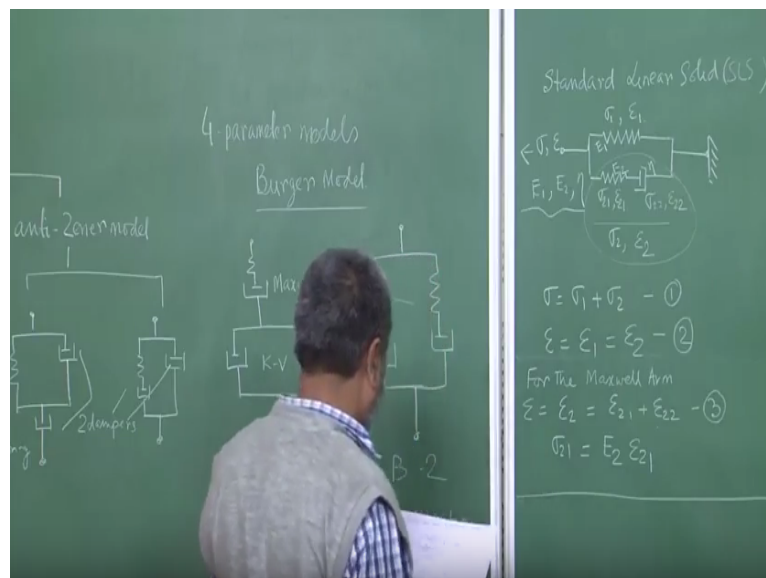 4-parameter models
Burger Model
anti-Zener model
K-V
2 dampers
B-2
Standard Linear Solid (SLS)
σ₁, ε₁
σ, ε
E₁, E₂, η
σ₂₁, ε₂₁
σ₂₂, ε₂₂
σ₂, ε₂
σ = σ₁ + σ₂ - ①
ε = ε₁ = ε₂ - ②
For The Maxwell Arm
ε = ε₂ = ε₂₁ + ε₂₂ - ③
σ₂₁ = E₂ ε₂₁